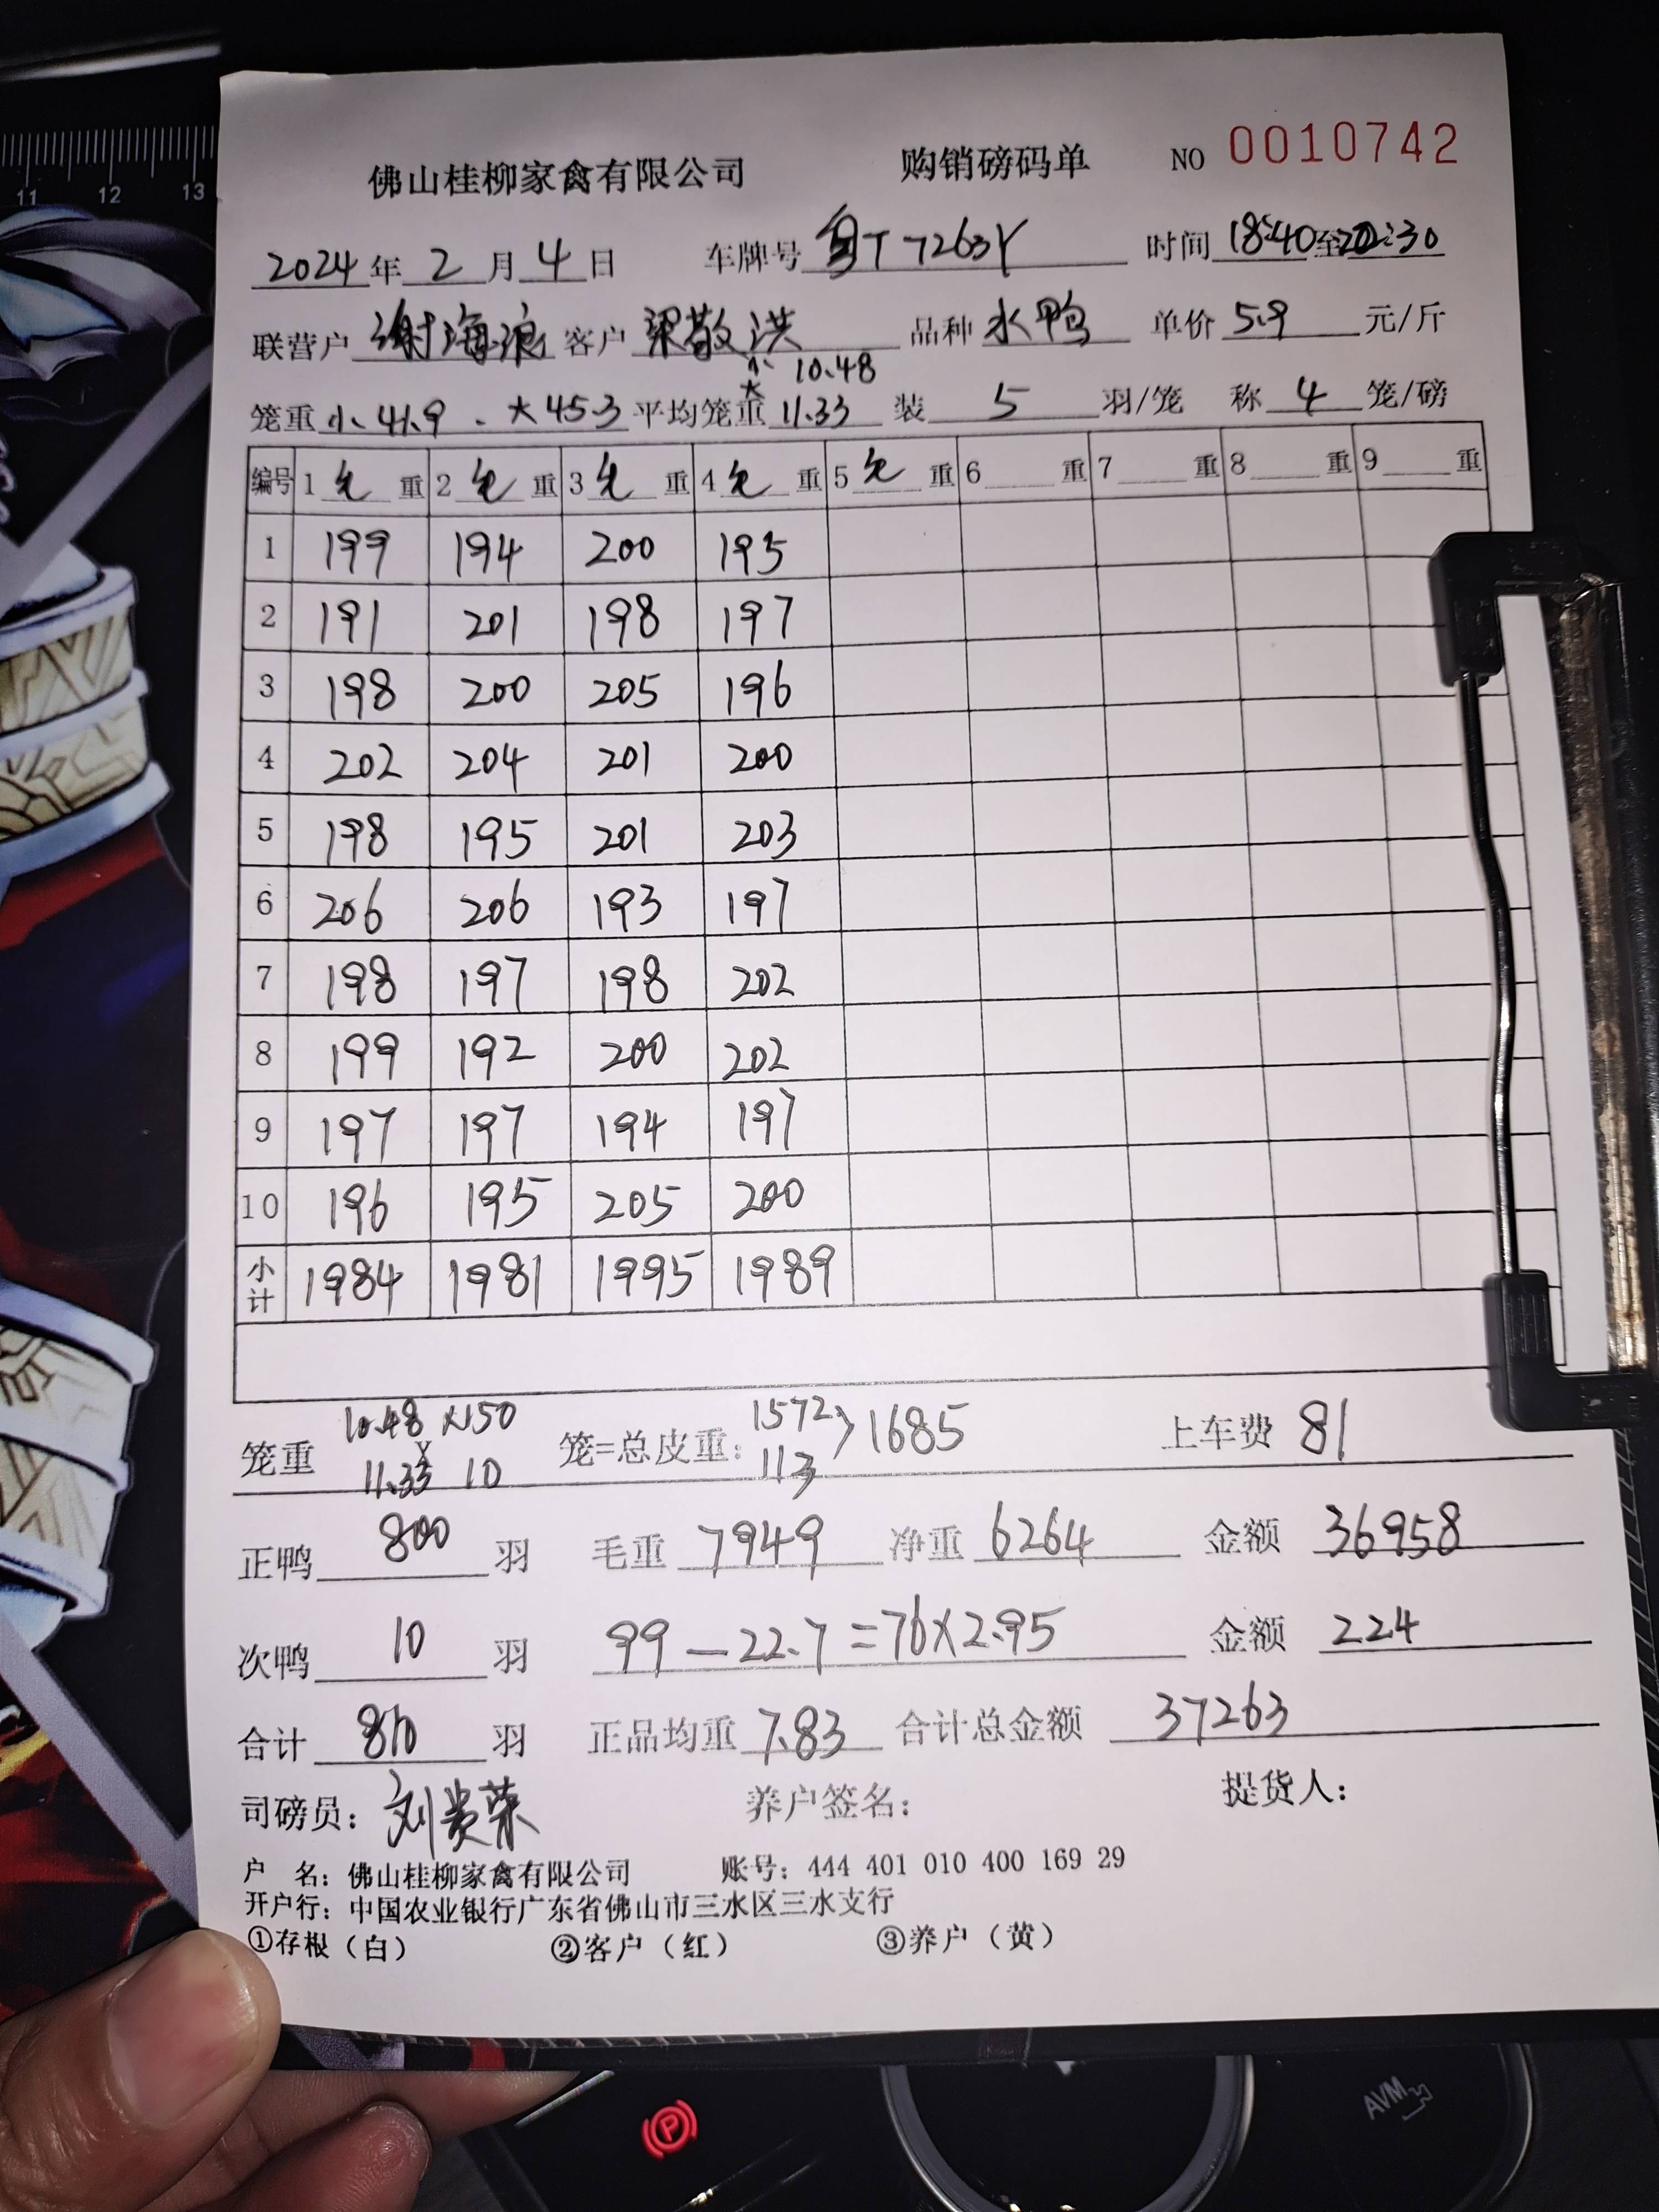 11 12 13
佛山桂柳家禽有限公司 购销磅码单 NO 0010742
2024年 2 月 4 日 车牌号 粤T 7263Y 时间 18:40至20:30
联营户 谢海浪 客户 梁敬洪 品种 水鸭 单价 5.9 元/斤
小 10.48
笼重 小 41.9 、大 45.3 平均笼重 大 11.33 装 5 羽/笼 称 4 笼/磅
编号 1 毛 重 2 毛 重 3 毛 重 4 毛 重 5 毛 重 6 重 7 重 8 重 9 重
1 199 194 200 195
2 191 201 198 197
3 198 200 205 196
4 202 204 201 200
5 198 195 201 203
6 206 206 193 197
7 198 197 198 202
8 199 192 200 202
9 197 197 194 197
10 196 195 205 200
小计 1984 1981 1995 1989
10.48 X150 1572
笼重 X 笼=总皮重: > 1685 上车费 81
11.33 10 113
正鸭 800 羽 毛重 7949 净重 6264 金额 36958
次鸭 10 羽 99 — 22.7 = 76 X 2.95 金额 224
合计 810 羽 正品均重 7.83 合计总金额 37263
司磅员: 刘贵荣 养户签名: 提货人:
户 名: 佛山桂柳家禽有限公司 账号: 444 401 010 400 169 29
开户行: 中国农业银行广东省佛山市三水区三水支行
①存根（白） ②客户（红） ③养户（黄）
P AVM